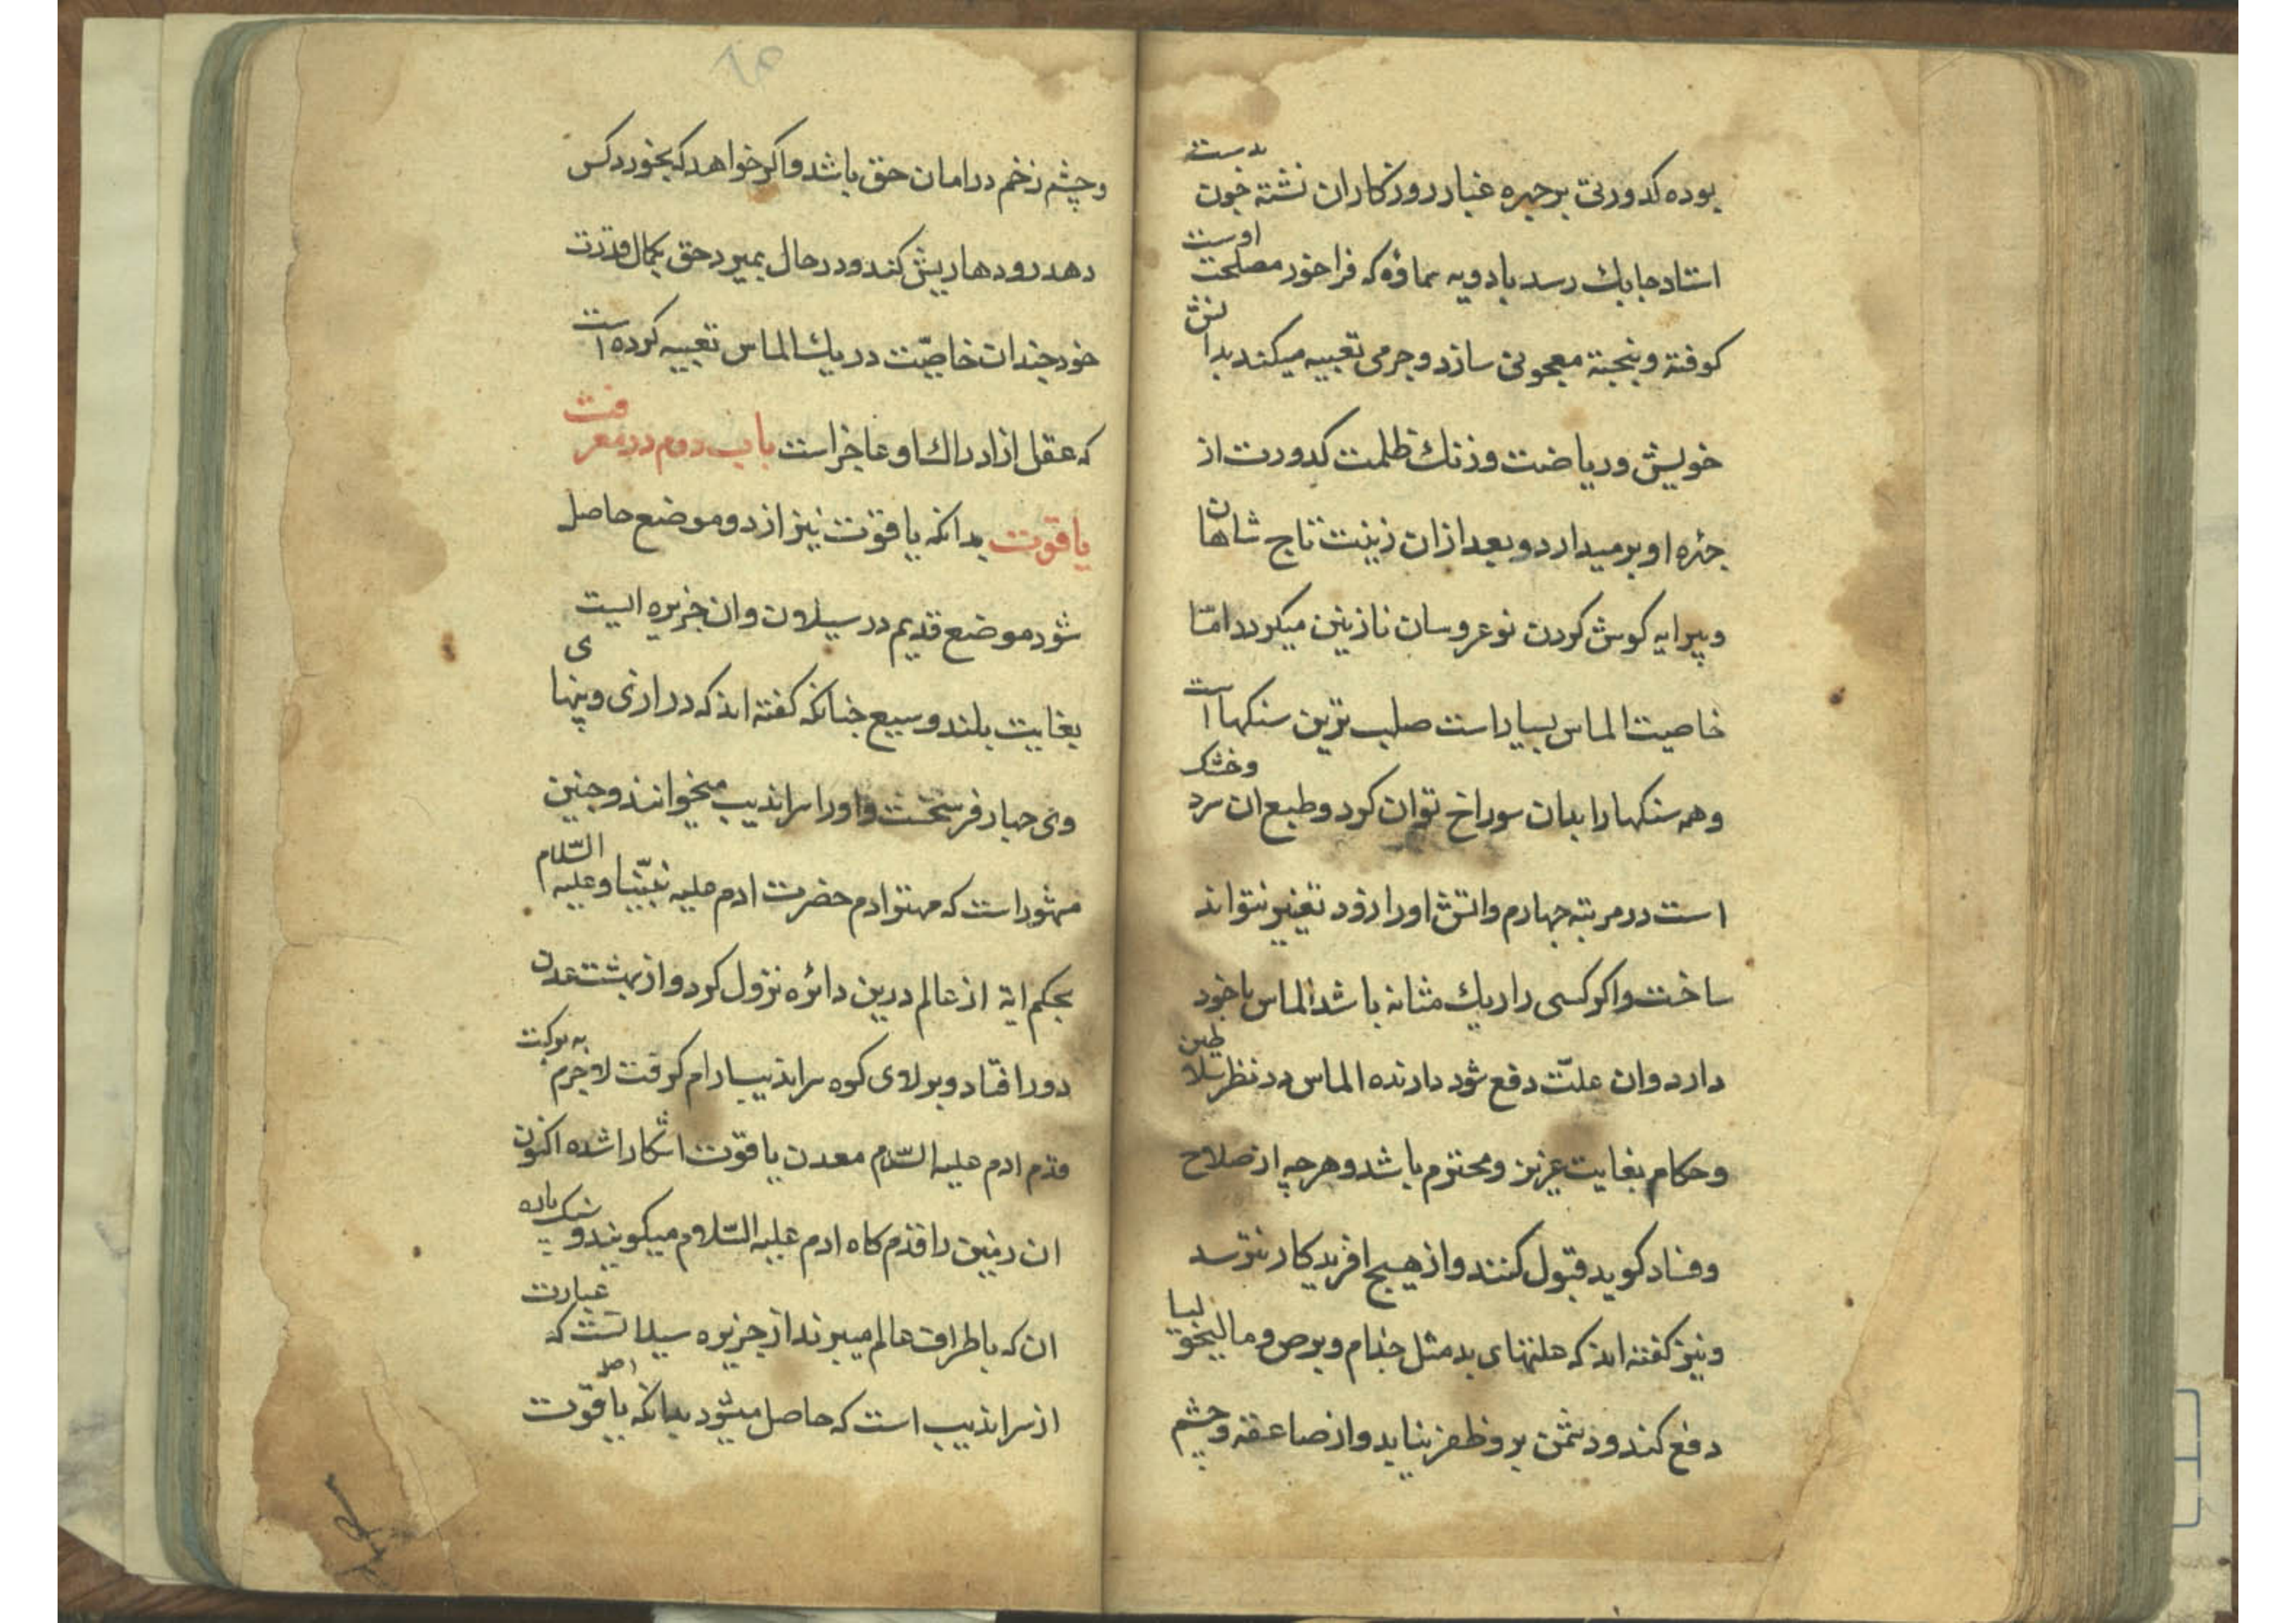 بوده کدورتی بر چهره غبار روزکاران نشته خون بدست
استاد جابك رسد بادویه که فراخور مصلحت اوست
کوفته و بنجیته معجونی سازد و جرمی تعبیه میکند بدانش
خویش و ریاضت و زنك ظلمت کدورت از
جهره او بر میدارد و بعد ازان زینت تاج شاهان
و پیرایه کوش کردن نوعروسان نازنین میکردد امّا
خاصیت الماس بسیار است صلب ترین سنکها است
وهمه سنکها را بدان سوراخ توان کرد و طبع ان سرد وخشك
است در مرتبه جهارم واتش اورا زود تغییر نتواند
ساخت واکر کسی را ریك مثانه باشد الماس باخود
دارد وان علتّ دفع شود دارنده الماس در نظر سلاطین
وحکام بغایت عزیز ومحترم باشد وهرچه از صلاح
وفساد کوید قبول کنند واز هیچ افریدکار نترسد
ونیز کفته اند که علتهای بد مثل جذام وبرص ومالیخولیا
دفع کند ودشمن برو ظفر نیابد واز صاعقه وچشم
وچشم زخم در امان حق باشد واکر خواهد که بخورد کس
دهد رودها ریش کند ودر حال بمیرد حق بکمال قدرت
خود چندان خاصیّت در یك الماس تعبیه کرده است
که عقل از ادراك او عاجز است باب دوم در معرفت
یاقوت بدانکه یاقوت نیز از دو موضع حاصل
شود موضع قدیم در سیلان وان جزیره ایست
بغایت بلند وسیع جنانکه کفته اند که درازی و پهنای
وی جهار فرسخست و اورا سراندیب میخوانند وجنین
مهشور است که مهتر ادم حضرت ادم علیه نبیّنا وعلیه السّلام
بحکم ایه از عالم درین دائره نزول کرد واز بهشت عدن
دور افتاد وبر لاوی کوه سراندیب ارام کرفت لاجرم به برکت
قدم ادم علیه السّلام معدن یاقوت اشکارا شده اکنون
ان زمین را قدم کاه ادم علیه السّلام میکویند و سنك پاره
ان که باطراف عالم میبرند از جزیره سیلا نست که عبارت
از سراندیب است که حاصل میشود بدانکه یاقوت اصل